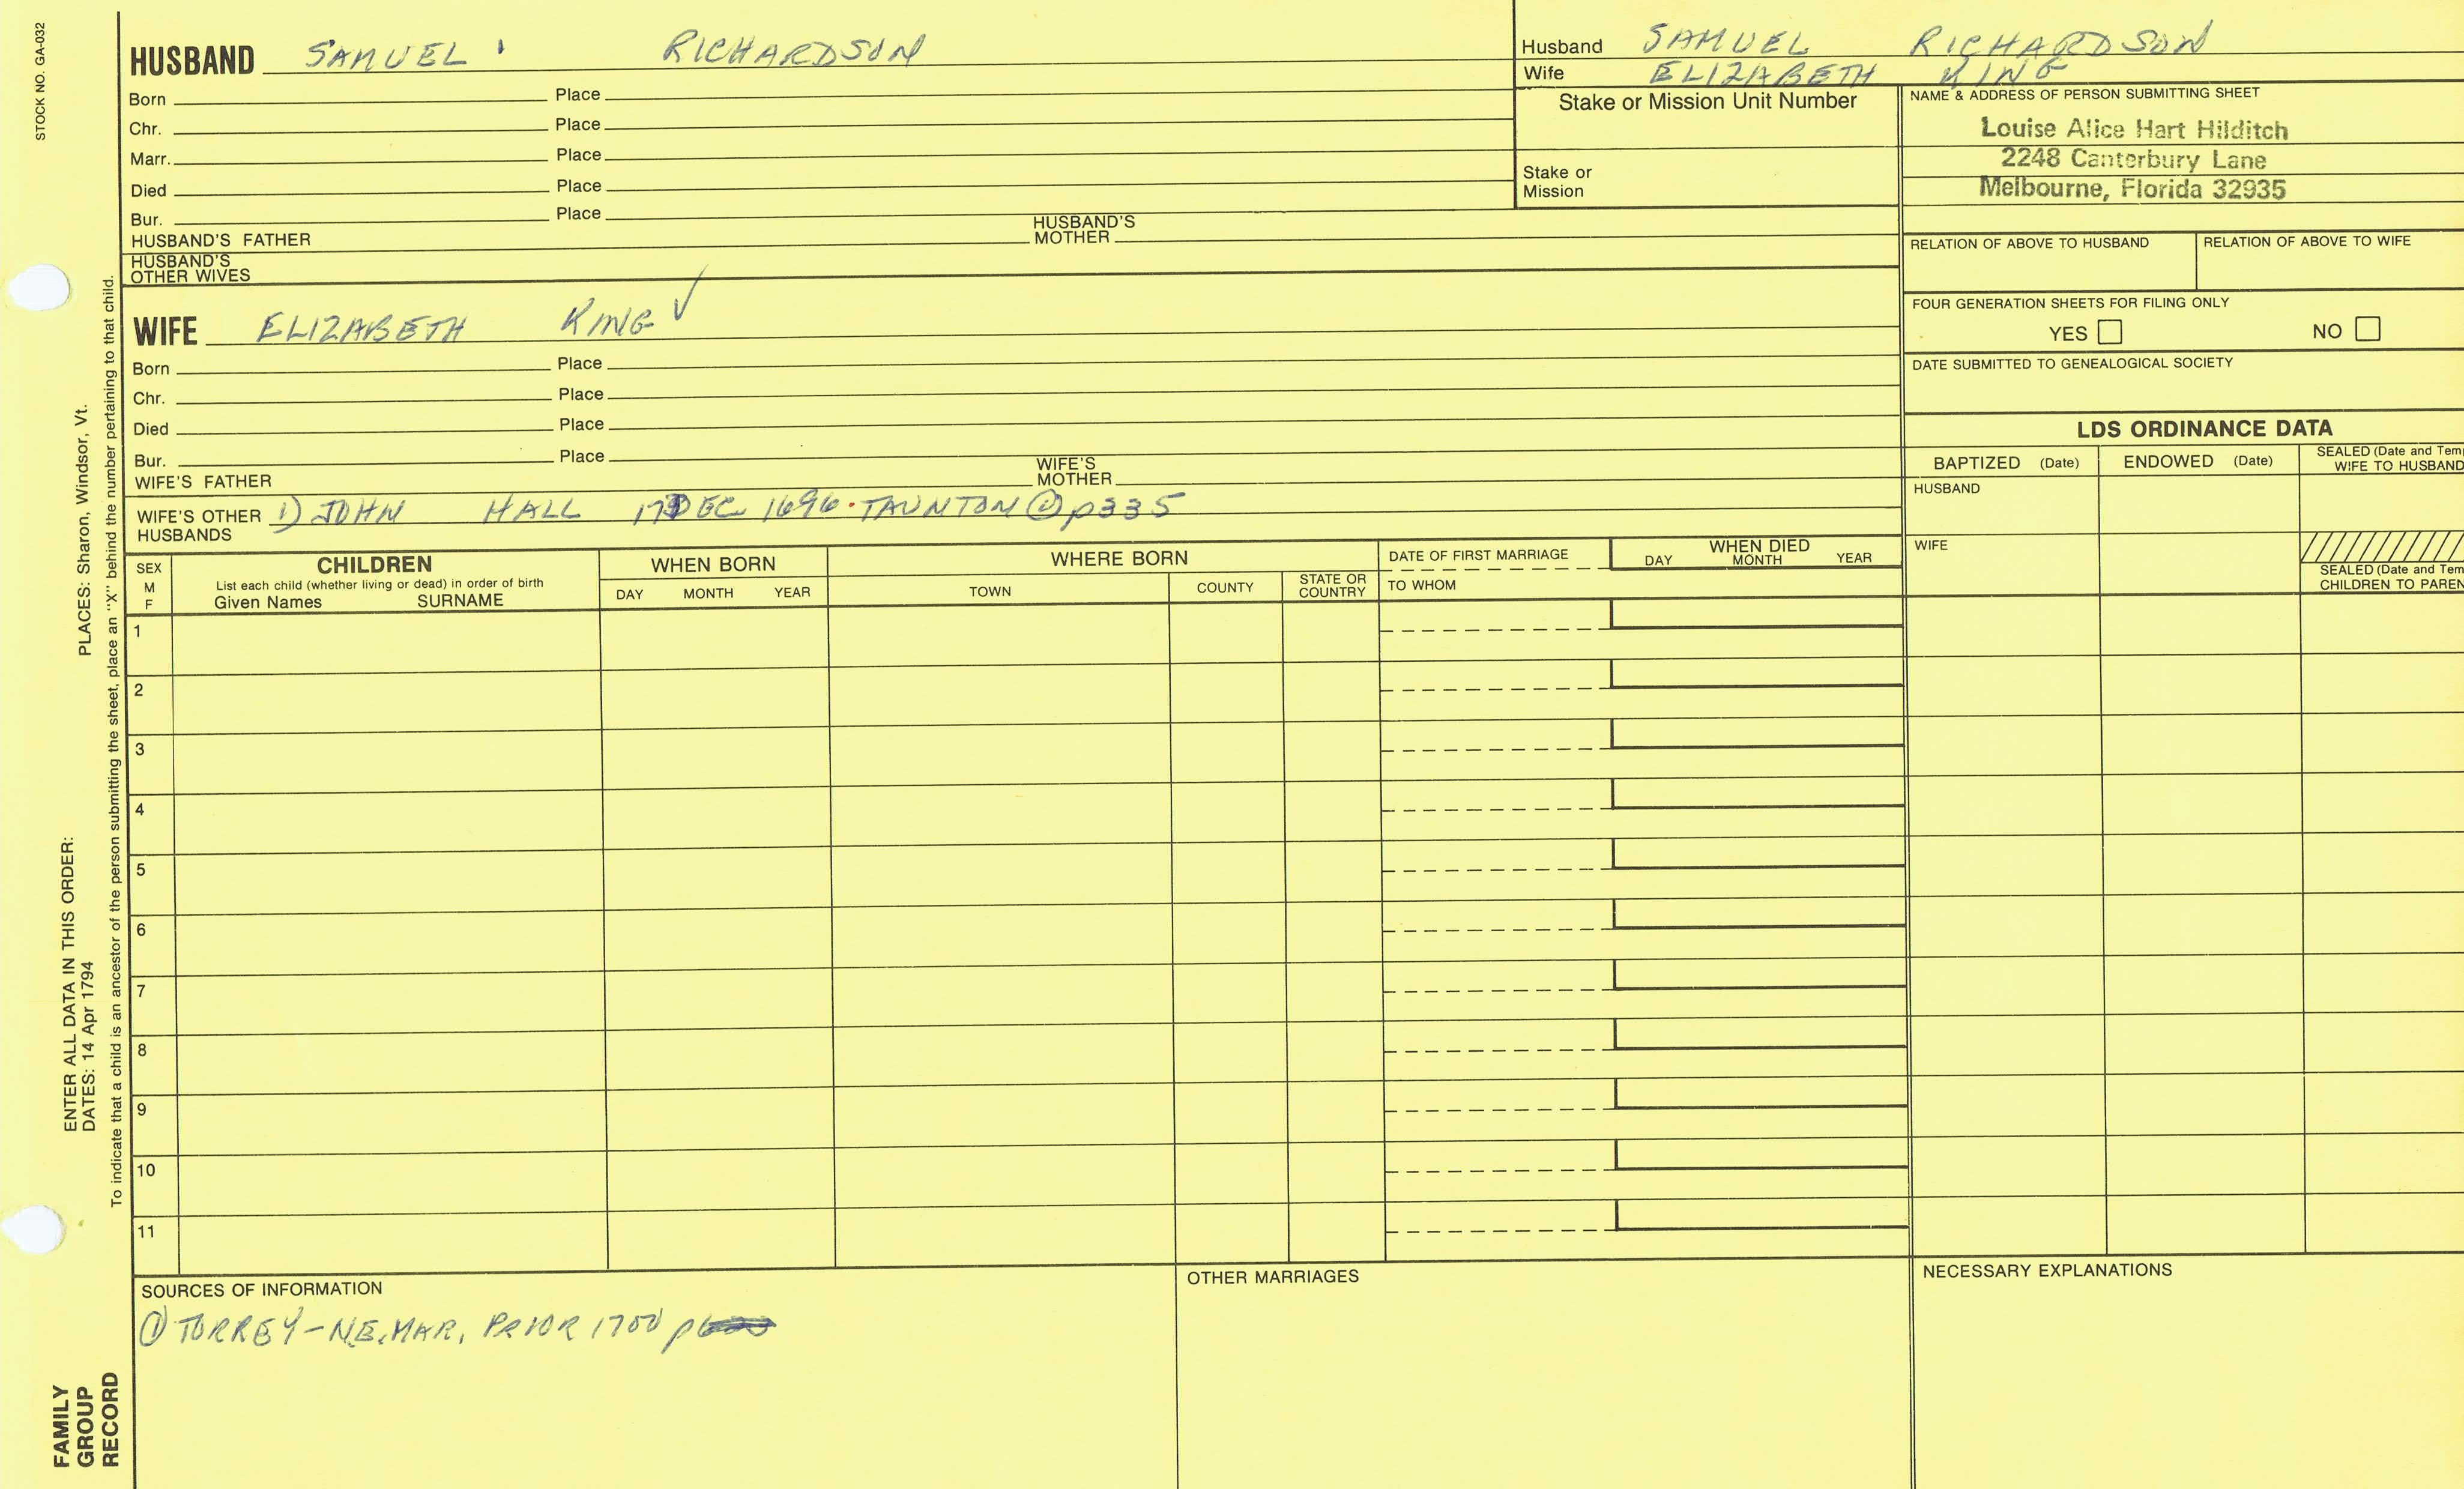 STOCK NO. GA-032
HUSBAND SAMUEL RICHARDSON
Born Place
Chr. Place
Marr. Place
Died Place
Bur. Place
HUSBAND'S FATHER HUSBAND'S MOTHER
HUSBAND'S OTHER WIVES
WIFE ELIZABETH KING ✓
Born Place
Chr. Place
Died Place
Bur. Place
WIFE'S FATHER WIFE'S MOTHER
WIFE'S OTHER HUSBANDS 1) JOHN HALL 17 DEC 1696 · TAUNTON ① p335
Husband SAMUEL RICHARDSON
Wife ELIZABETH KING
Stake or Mission Unit Number
Stake or
Mission
NAME & ADDRESS OF PERSON SUBMITTING SHEET
Louise Alice Hart Hilditch
2248 Canterbury Lane
Melbourne, Florida 32935
RELATION OF ABOVE TO HUSBAND RELATION OF ABOVE TO WIFE
FOUR GENERATION SHEETS FOR FILING ONLY
YES NO
DATE SUBMITTED TO GENEALOGICAL SOCIETY
LDS ORDINANCE DATA
BAPTIZED (Date) ENDOWED (Date) SEALED (Date and Tem
WIFE TO HUSBAND
HUSBAND
WIFE
SEALED (Date and Tem
CHILDREN TO PAREN
SEX
M
F
CHILDREN
List each child (whether living or dead) in order of birth
Given Names SURNAME
WHEN BORN
DAY MONTH YEAR
WHERE BORN
TOWN COUNTY STATE OR COUNTRY
DATE OF FIRST MARRIAGE
TO WHOM
WHEN DIED
DAY MONTH YEAR
1
2
3
4
5
6
7
8
9
10
11
SOURCES OF INFORMATION
① TORREY - N.E. MAR. PRIOR 1700 p
OTHER MARRIAGES
NECESSARY EXPLANATIONS
ENTER ALL DATA IN THIS ORDER:
DATES: 14 Apr 1794 PLACES: Sharon, Windsor, Vt.
To indicate that a child is an ancestor of the person submitting the sheet, place an "X" behind the number pertaining to that child.
FAMILY
GROUP
RECORD